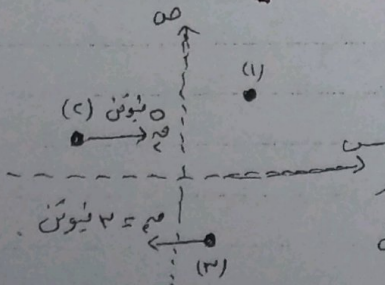 ص
(١)
(٢) ٥ نيوتن
س
ق٢
ق٣ = ٣ نيوتن
(٣)